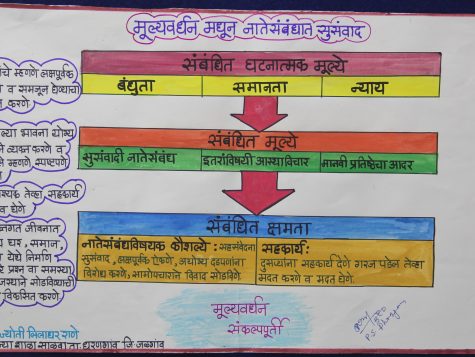 मूल्यवर्धन मधून नातेसंबंधात सुसंवाद
संबंधित घटनात्मक मूल्ये
बंधुता समानता न्याय
संबंधित मूल्ये
सुसंवादी नातेसंबंध इतरांविषयी आस्थाविचार मानवी प्रतिष्ठेचा आदर
संबंधित क्षमता
नातेसंबंधविषयक कौशल्ये: सहसंवेदना
सुसंवाद, लक्षपूर्वक ऐकणे, अयोग्य दडपणांना
विरोध करणे, सामोपचाराने विवाद सोडविणे.
सहकार्य:
दुसऱ्यांना सहकार्य देणे गरज पडेल तेव्हा
मदत करणे व मदत घेणे.
म्हणणे लक्षपूर्वक
व समजून घेण्याची
करणे.
भावना योग्य
व्यक्त करणे व
म्हणणे स्पष्टपणे
तेव्हा, सहकार्य
घेणे
जीवनात
घर, समाज,
येथे निर्माण
प्रश्न व समस्या
सोडविण्याची
विकसित करणे.
मूल्यवर्धन
संकल्पपूर्ती
ज्योती लिलाधर राणे
शाळा साळवा ता: धरणगाव जि जळगाव